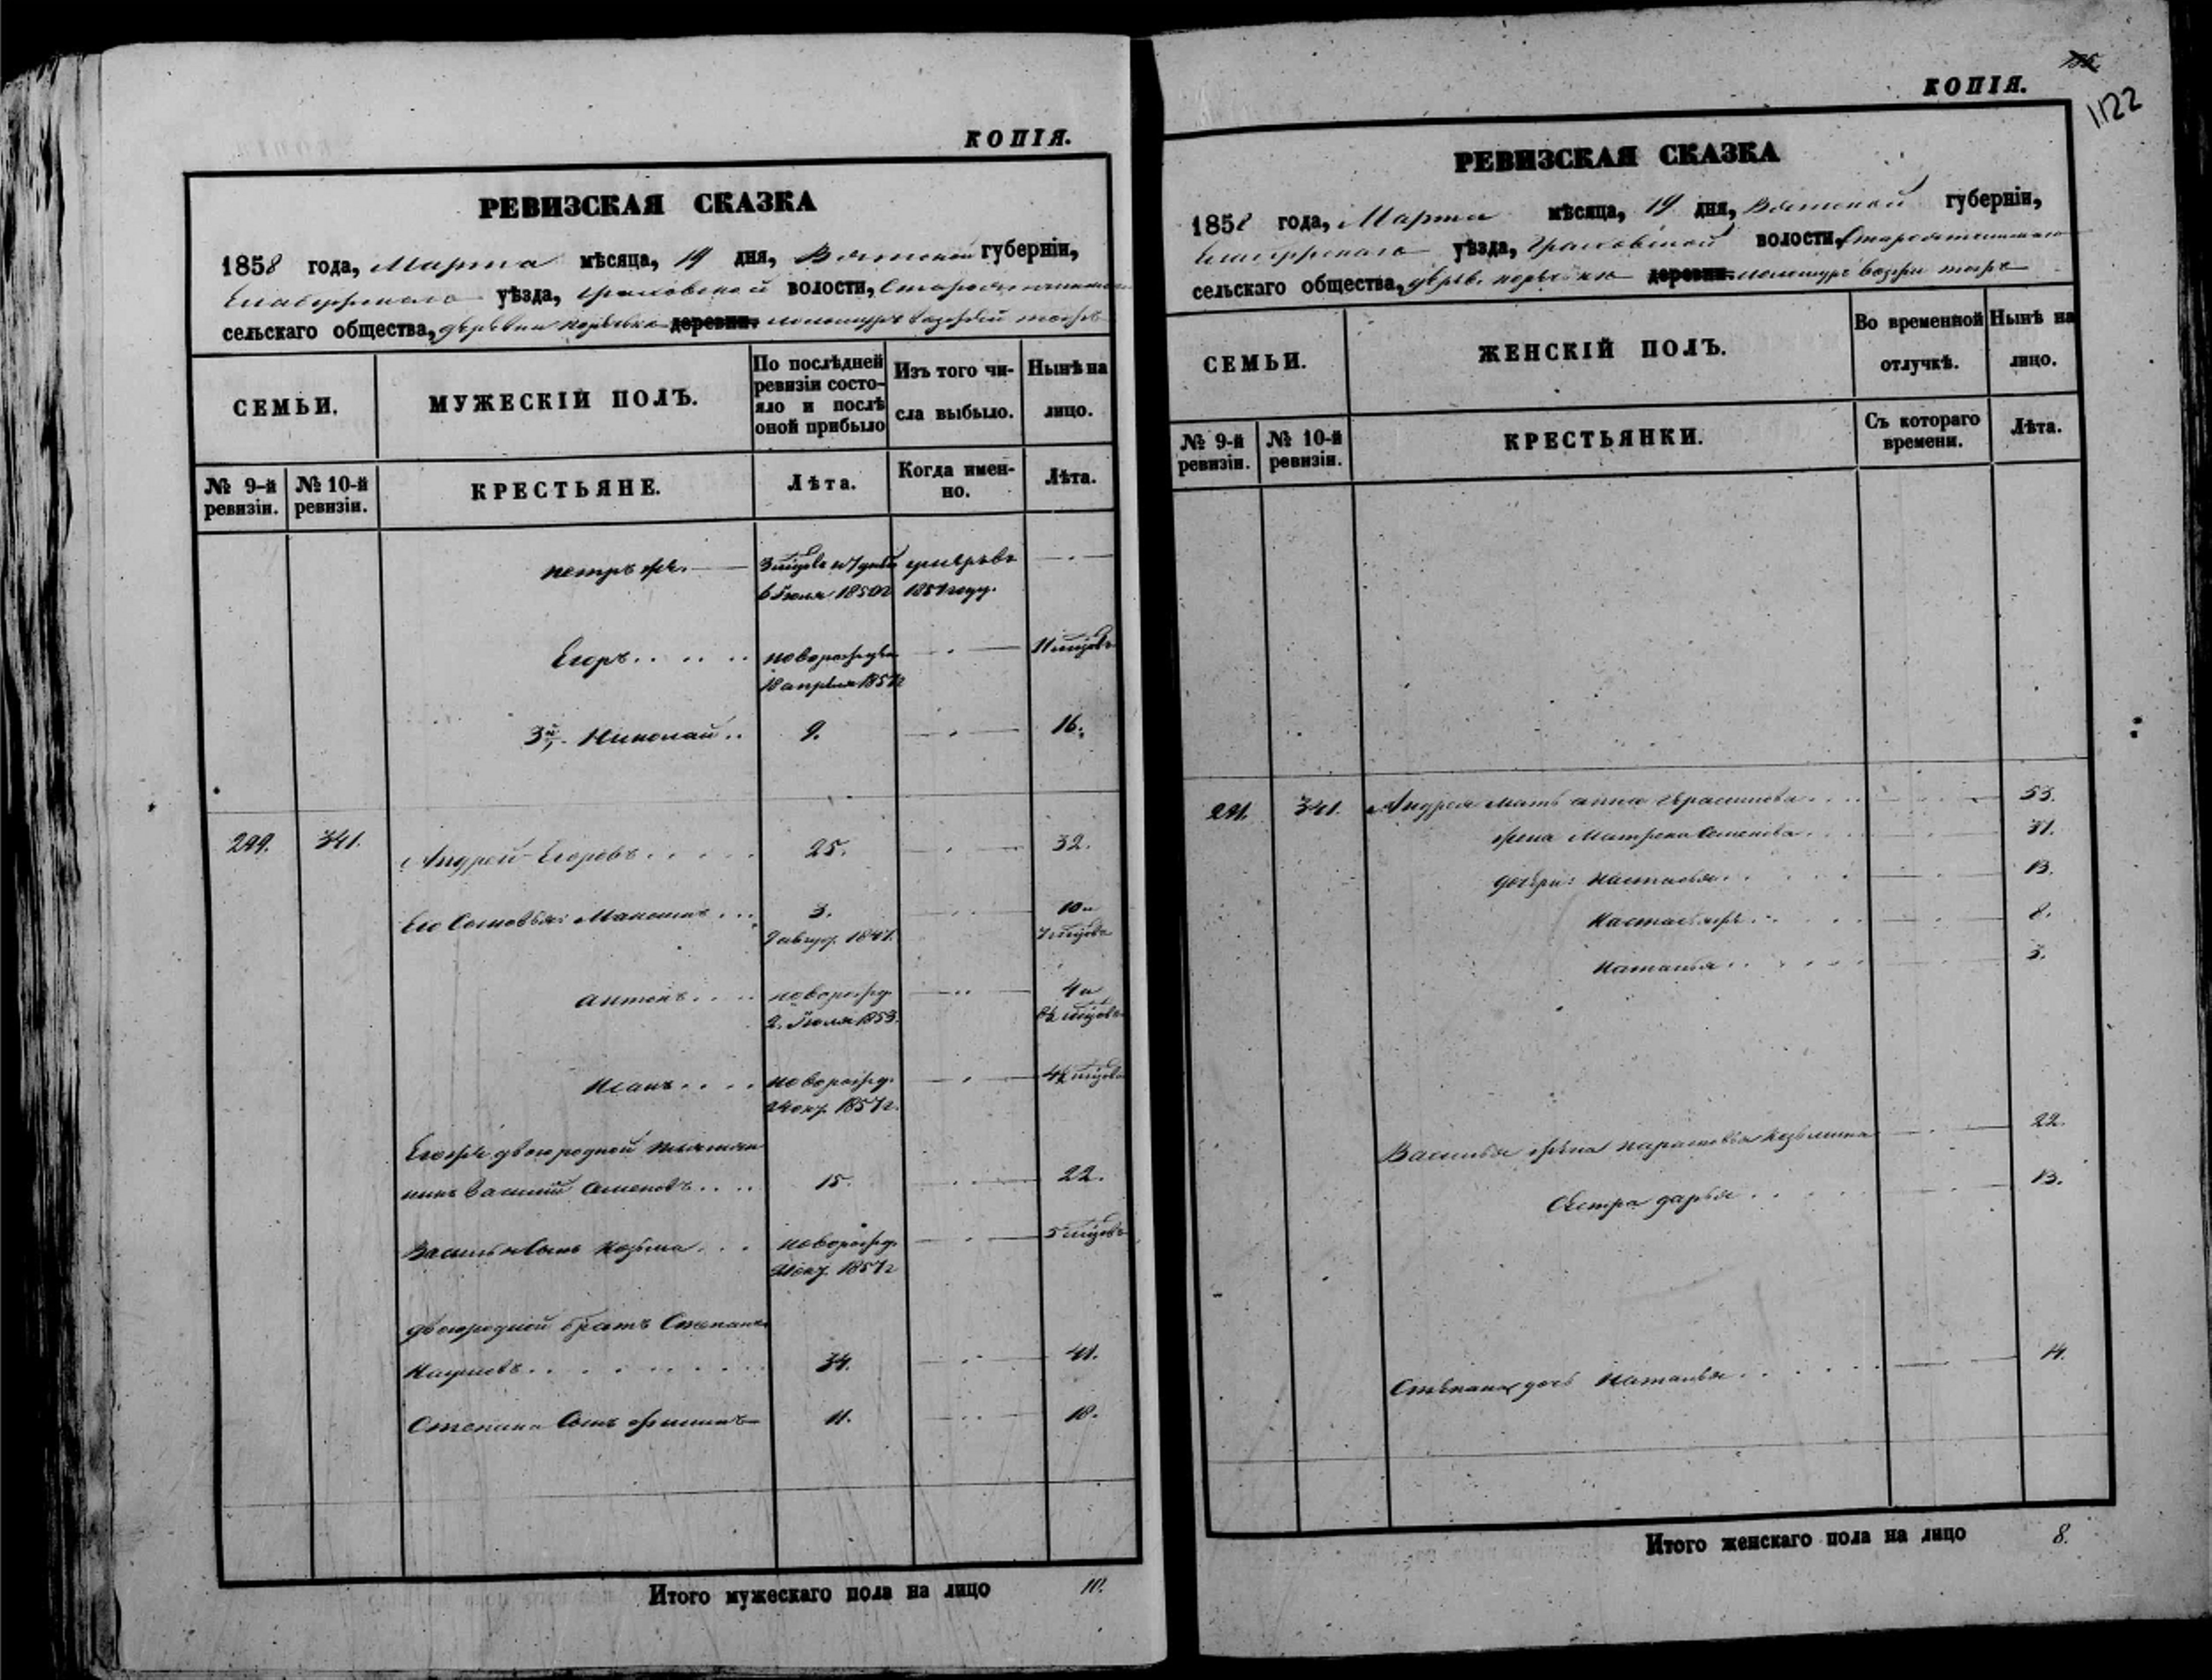 КОПІЯ.
РЕВИЗСКАЯ СКАЗКА
1858 года, Марта мѣсяца, 19 дня, Вятской губерніи,
Елабужскаго уѣзда, Граховской волости,
сельскаго общества, деревни деревни.
СЕМЬИ.
МУЖЕСКІЙ ПОЛЪ.
По послѣдней ревизіи состо-
яло и послѣ оной прибыло
Изъ того чи-
сла выбыло.
Нынѣ на
лицо.
№ 9-й ревизіи.
№ 10-й ревизіи.
КРЕСТЬЯНЕ.
Лѣта.
Когда имен-
но.
Лѣта.
Петръ же. умеръ въ
6 Іюля 1850 1851 году.
Егоръ новорожден 11 мѣсцовъ
18 апреля 1857
3й Николай 9. 16.
299. 341. Андрей Егоровъ 25. 32.
Его Сыновья: Максимъ 3. 10 и
1847. 7 мѣсцовъ
Антонъ новорожд. 4 и
2 Іюля 1853. 8½ мѣсцовъ
Иванъ новорожд. 4½ мѣсцовъ
окт. 1857 г.
Егора двоюродной племян
никъ Василий Семеновъ 15. 22.
Василья Сынъ Козьма новорожд. 5 мѣсцовъ
окт. 1857 г
двоюродной братъ Степанъ
34. 41.
Степана Сынъ Филипъ 11. 18.
Итого мужескаго пола на лицо 10.
КОПІЯ.
1122
РЕВИЗСКАЯ СКАЗКА
1858 года, Марта мѣсяца, 19 дня, Вятской губерніи,
Елабужскаго уѣзда, Граховской волости,
сельскаго общества, дерев. деревни.
СЕМЬИ.
ЖЕНСКІЙ ПОЛЪ.
Во временной
отлучкѣ.
Нынѣ на
лицо.
№ 9-й ревизіи.
№ 10-й ревизіи.
КРЕСТЬЯНКИ.
Съ котораго
времени.
Лѣта.
341. Андрея мать Анна Герасимова 53.
жена Матрена Семенова 31.
дочери: Настасья 13.
Настасья же 8.
Наталья 3.
Василья жена Парасковья Козьмина 22.
Сестра Дарья 13.
Степана дочь Наталья 14.
Итого женскаго пола на лицо 8.